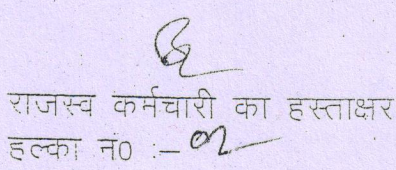 राजस्व कर्मचारी का हस्ताक्षर
हल्का नं0 :– 02